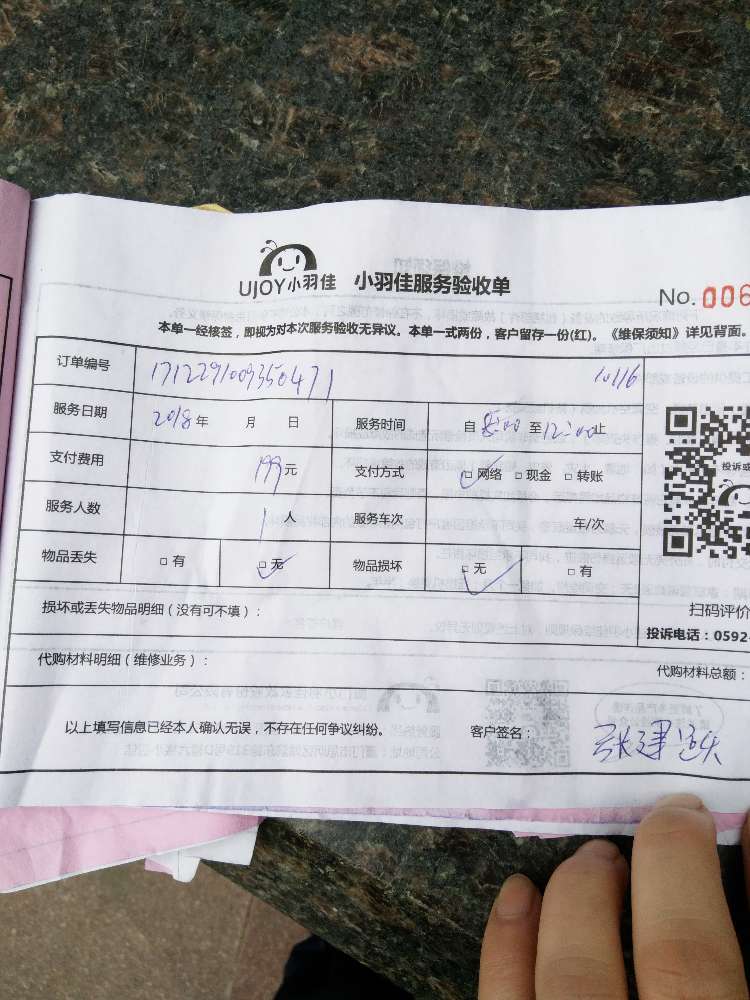 UJOY小羽佳 小羽佳服务验收单
No. 006
本单一经核签，即视为对本次服务验收无异议。本单一式两份，客户留存一份(红)。《维保须知》详见背面。
订单编号 1712291009350471 10116
服务日期 2018年 月 日 服务时间 自 至12:00止
支付费用 199元 支付方式 □网络 □现金 □转账
服务人数 1人 服务车次 车/次
物品丢失 □有 □无 物品损坏 □无 □有
损坏或丢失物品明细（没有可不填）：
代购材料明细（维修业务）：
代购材料总额：
以上填写信息已经本人确认无误，不存在任何争议纠纷。 客户签名： 张建
投诉或
扫码评价
投诉电话：0592-